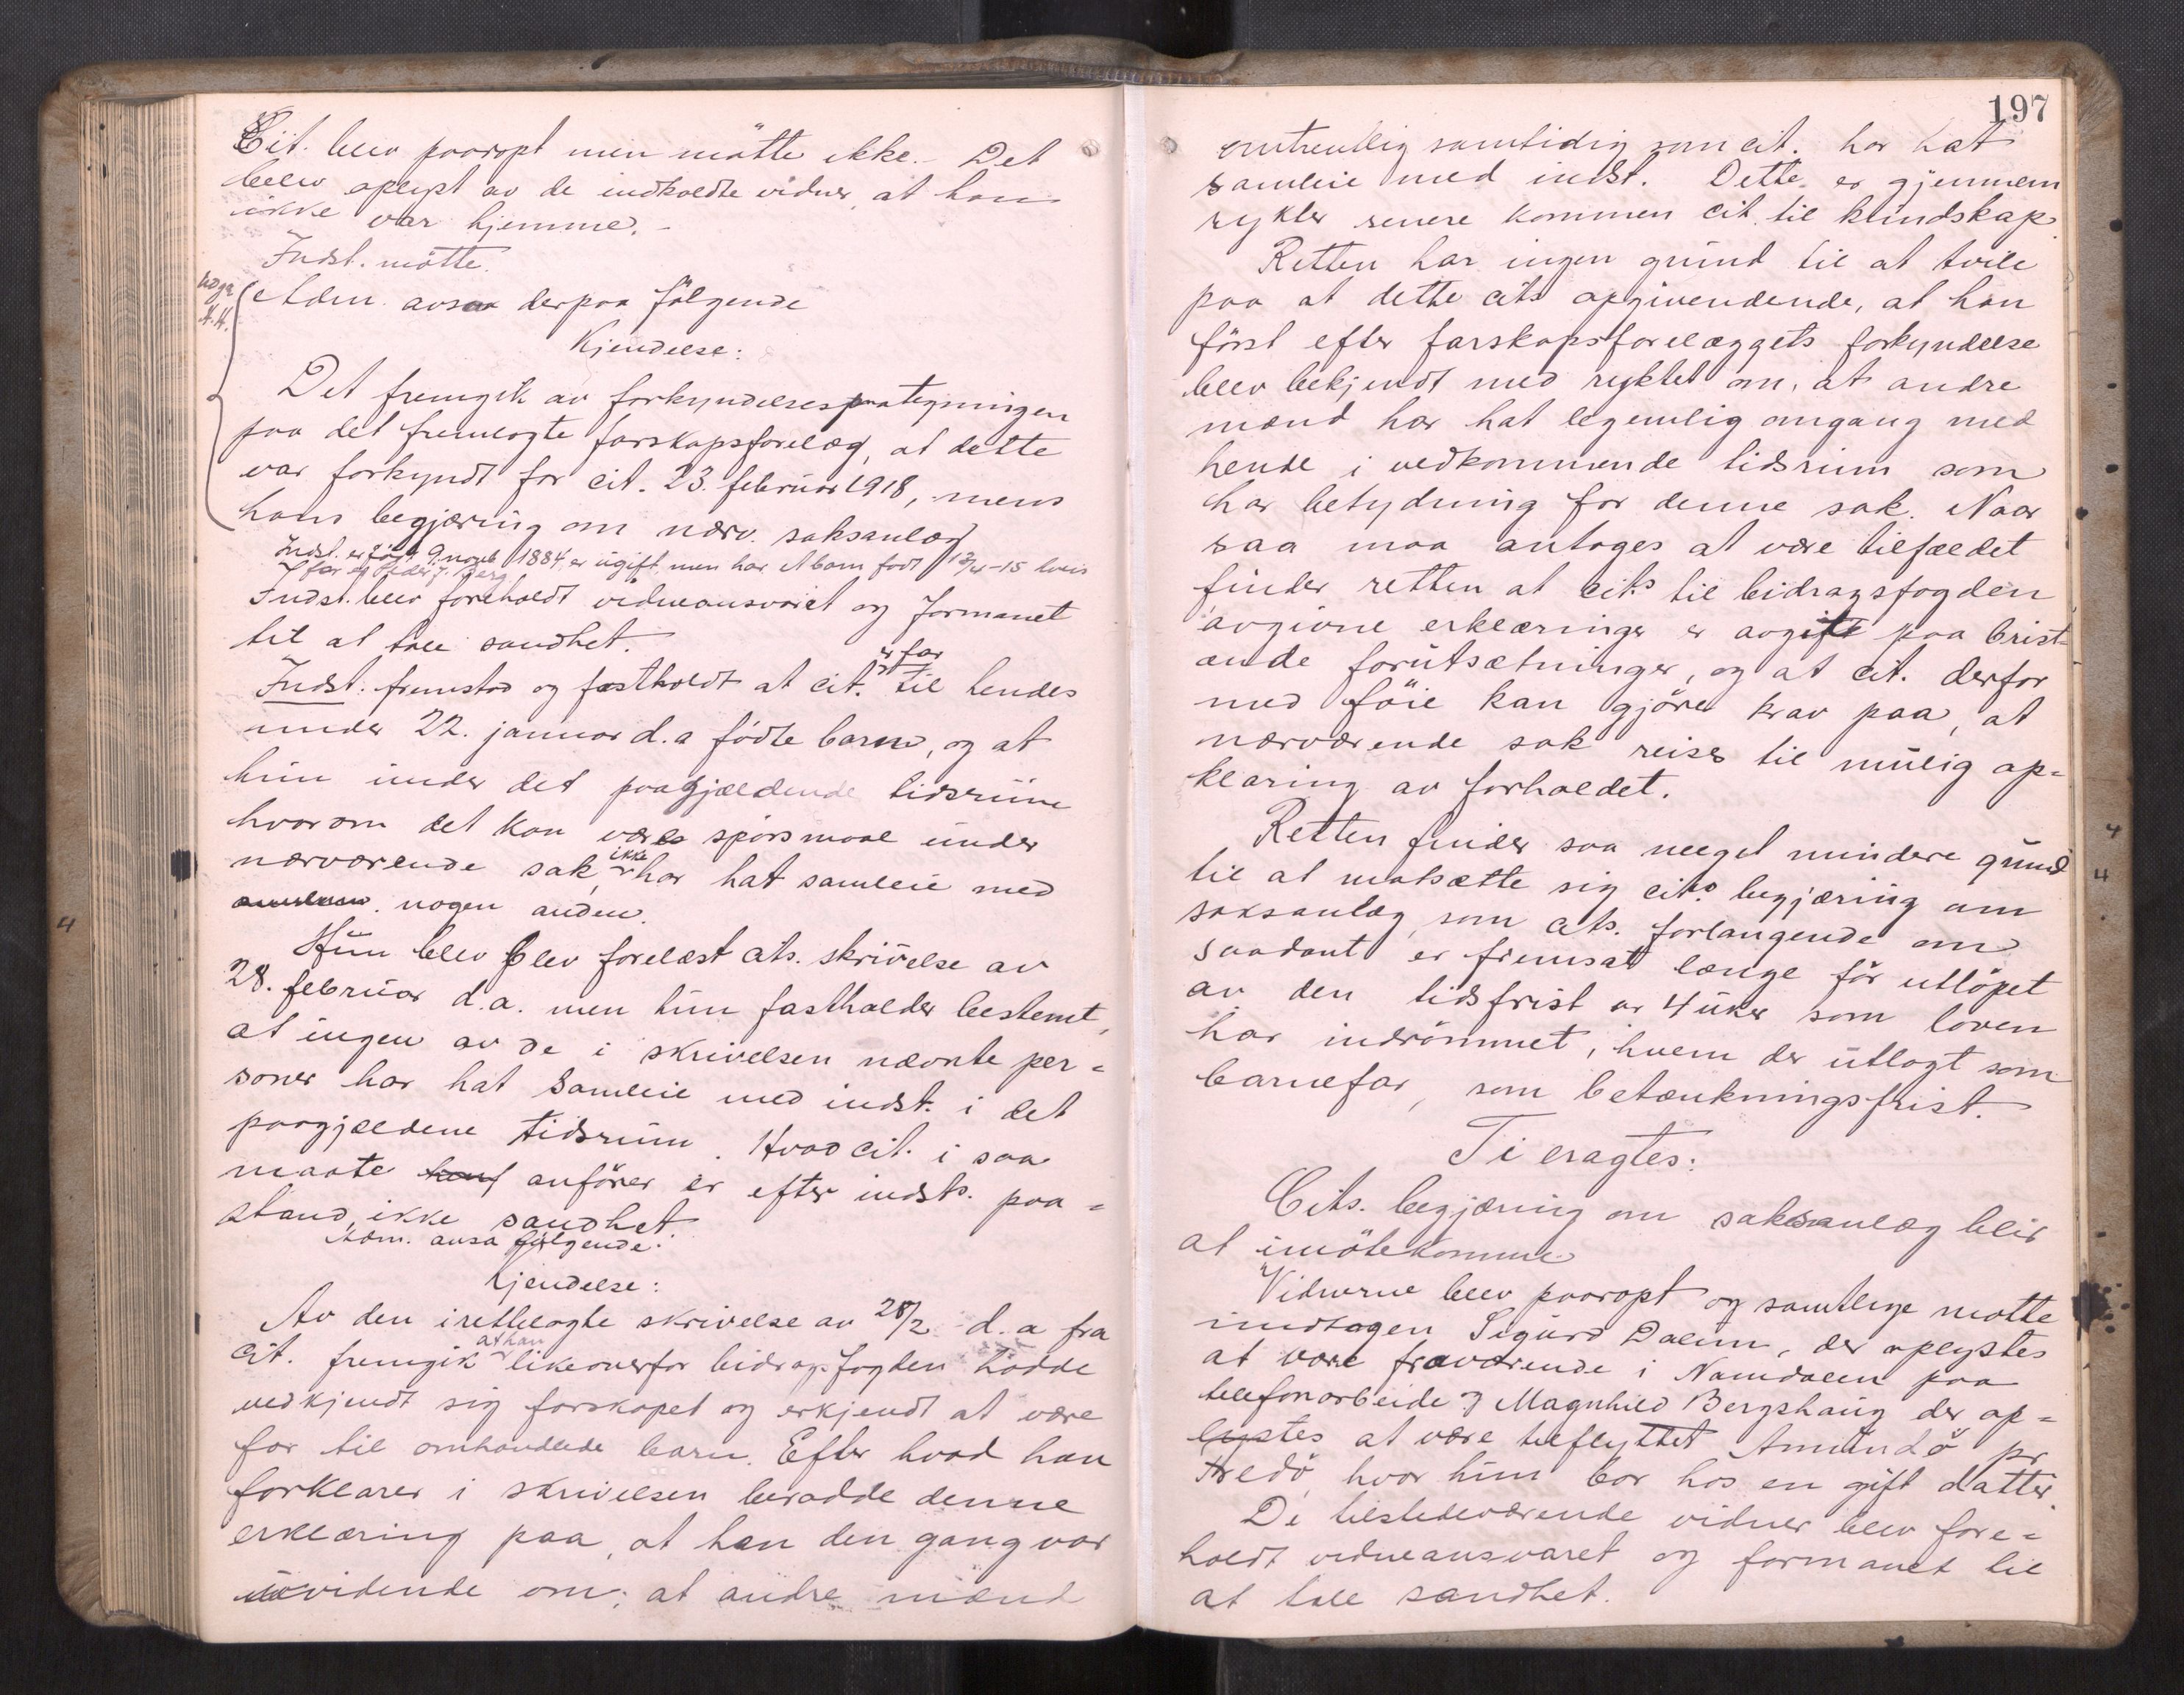 Cit. blev paaropt men møtte ikke. - Det
blev oplyst av de indkaldte vidner, at han
ikke var hjemme. -
Indst. møtte.
Adm. avsaa derpaa følgende
Kjendelse:
Det fremgik av forkyndelsespaategningen
paa det fremlagte farskapsforelæg, at dette
var forkyndt for cit. 23. februar 1918, mens
hans begjæring om nærv. saksanlæg
Indst. er født 9. novb 1884, er ugift men har 1 barn født 13/4-15 hvis
far er Peder J. Berg
Indst. blev foreholdt vidneansvaret og formanet
til at tale sandhet.
Indst: fremstod og fastholdt at cit. er far til hendes
under 22. januar d.a fødte barn, og at
hun under det paagjældende tidsrum
hvorom det kan være spørsmaal under
nærværende sak, ikke har hat samleie med
nogen anden.
Hun blev blev forelæst cits. skrivelse av
28. februar d.a. men hun fastholder bestemt,
at ingen av de i skrivelsen nævnte per=
soner har hat samleie med indst. i det
paagjældene tidsrum. Hvad cit. i saa
maate anfører er efter indsts. paa=
stand, ikke sandhet.
Adm. avsa følgende:
Kjendelse:
Av den iretlelagte skrivelse av 28/2 d.a fra
cit. fremgik at han likeoverfor bidragsfogden hadde
vedkjendt sig farskapet og erkjendt at være
far til omhandlede barn. Efter hvad han
forklarer i skrivelsen beradde denne
erklæring paa, at han den gang var
uvidende om, at andre mænd
197
omtrentlig samtidig som cit. har hat
samleie med indst. Dette er gjennem
rykter senere kommen cit. til kundskap.
Retten har ingen grund til at tvile
paa at dette cits opgivendende, at han
først efter farskapsforelæggets forkyndelse
blev bekjendt med ryktet om, at andre
mænd har hat legemlig omgang med
hende i vedkommende tidsrum som
har betydning for denne sak. Naar
saa maa antages at være tilfældet
finder retten at cits til bidragsfogden
avgivne erklæringer er avgitt paa brist-
ende forutsætninger, og at cit. derfor
med føie kan gjøre krav paa, at
nærværende sak reises til mulig op=
klaring av forholdet.
Retten finder saa meget mindere grund
til at motsætte sig cits. begjæring om
saksanlæg, som cits. forlangende om
saadant er fremsat længe før utløpet
av den tidsfrist av 4 uker som loven
har indrømmet, hvem der utlagt som
barnefar, som betænkningsfrist.
Ti eragtes:
Cits. begjæring om saksanlæg blir
at imøtekomme
Vidnerne blev paaropt og samtlige møtte
undtagen Sigurd Dalum, der oplystes
at være fraværende i Namdalen paa
telefonarbeide og Magnhild Bergshaug der op=
lystes at være tilflyttet Amundø pr
Fredø, hvor hun bor hos en gift datter.
De tilstedeværende vidner blev fore=
holdt vidneansvaret og formanet til
at tale sandhet.